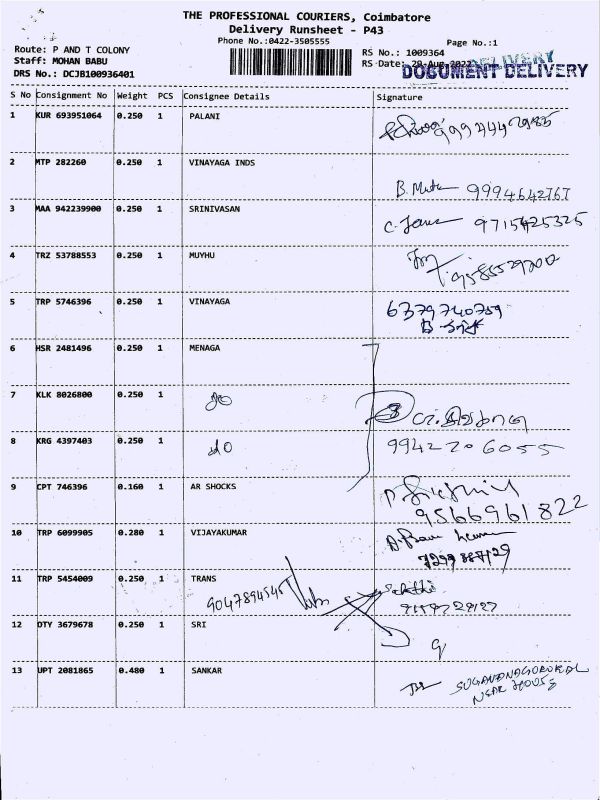 THE PROFESSIONAL COURIERS, Coimbatore
Delivery Runsheet - P43
Phone No.:0422-3505555
Page No.:1
Route: P AND T COLONY
RS No.: 1009364
Staff: MOHAN BABU
RS Date:
DOCUMENT DELIVERY
DRS No.: DCJB100936401
S No Consignment No Weight PCS Consignee Details Signature
1 KUR 693951064 0.250 1 PALANI
2 MTP 282260 0.250 1 VINAYAGA INDS
9994642767
3 MAA 942239900 0.250 1 SRINIVASAN
9715425325
4 TRZ 53788553 0.250 1 MUYHU
5 TRP 5746396 0.250 1 VINAYAGA 6379740759
6 HSR 2481496 0.250 1 MENAGA
7 KLK 8026800 0.250 1 do
8 KRG 4397403 0.250 1 do 9942206055
9 CPT 746396 0.160 1 AR SHOCKS
9566961822
10 TRP 6099905 0.280 1 VIJAYAKUMAR
11 TRP 5454009 0.250 1 TRANS
9047894545
12 OTY 3679678 0.250 1 SRI
13 UPT 2081865 0.480 1 SANKAR
NEAR HOUSE